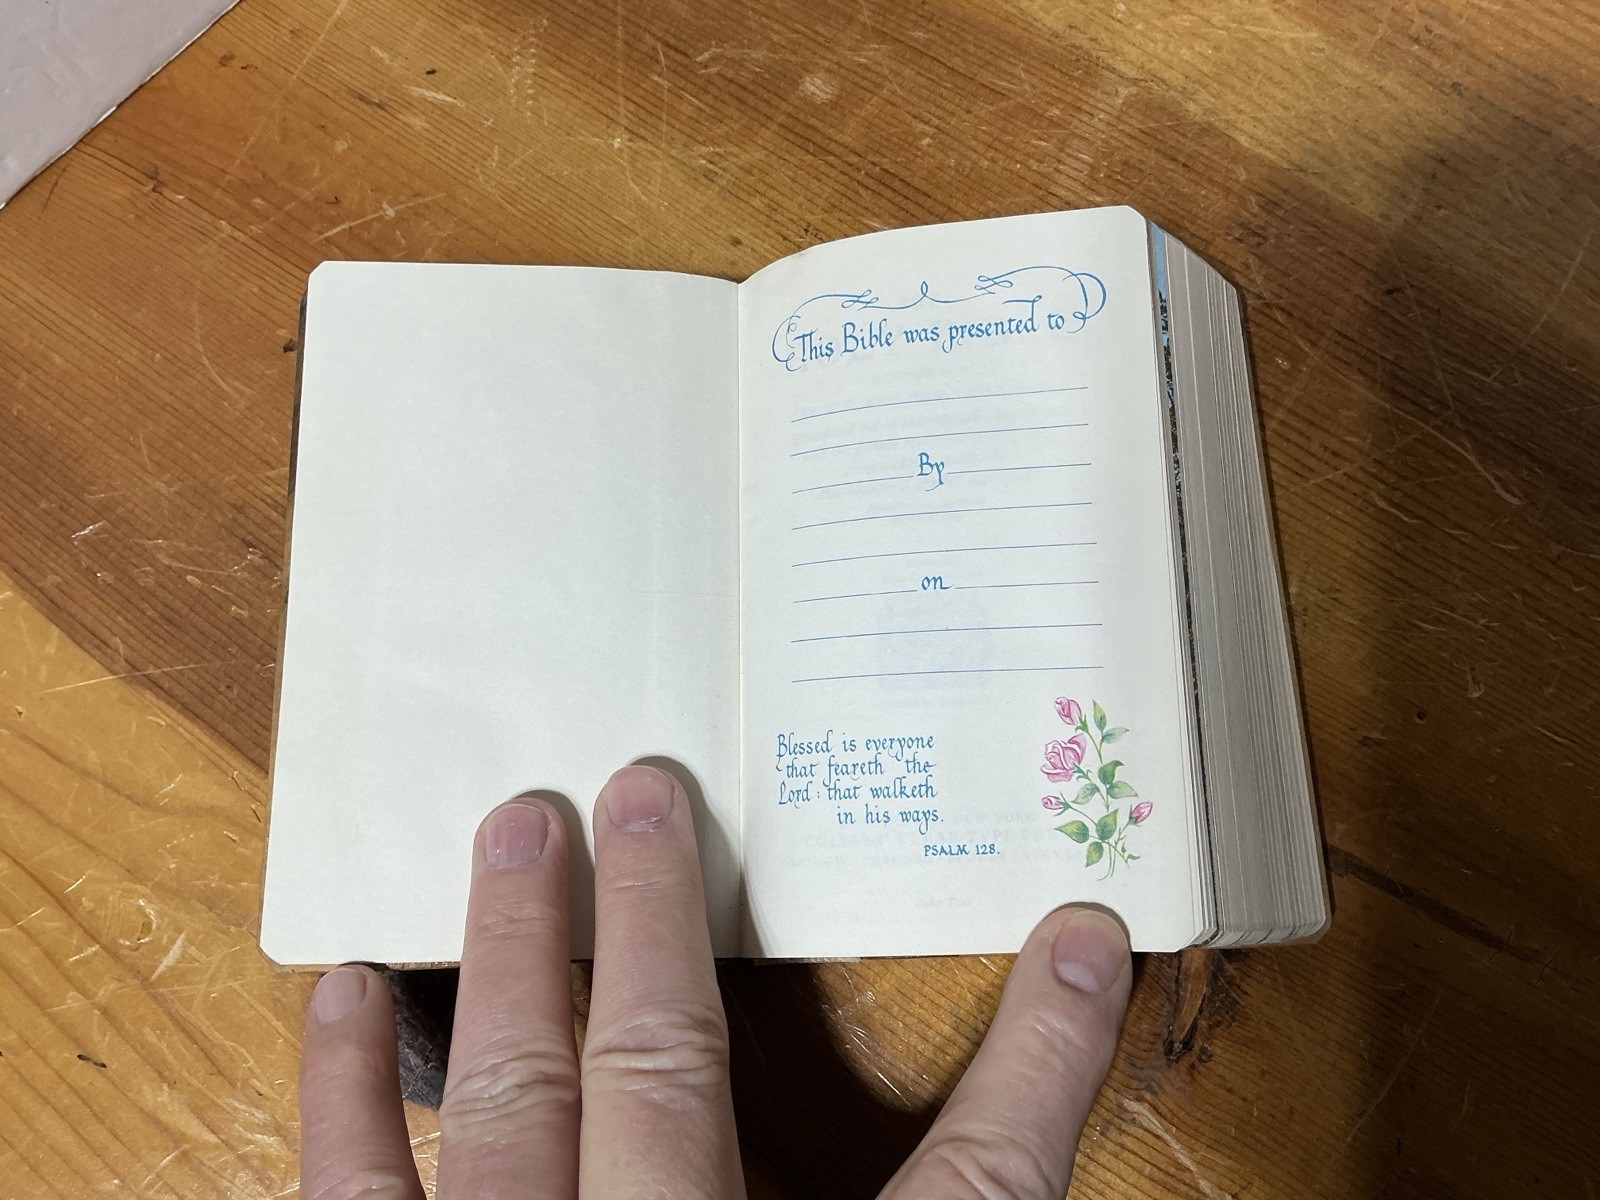 This Bible was presented to
By
on
Blessed is everyone
that feareth the
Lord : that walketh
in his ways.
PSALM 128.